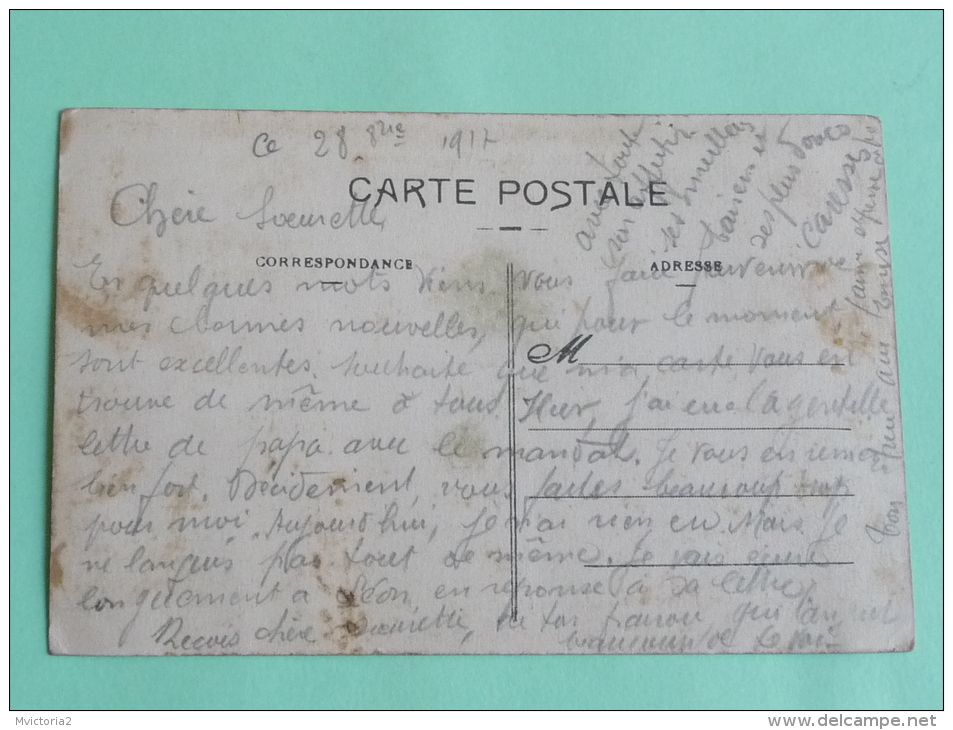 Ce 28 8bre 1917
CARTE POSTALE
Chère Soeurette
CORRESPONDANCE
ADRESSE
En quelques mots viens vous faire parvenir de
mes bonnes nouvelles, qui pour le moment
sont excellentes. Souhaite que ma carte vous en
M
trouve de même à tous. Hier, j'ai eu la gentille
lettre de papa avec le mandat. Je vous en remercie
bien fort. Décidément, vous faites beaucoup trop
pour moi. Aujourd'hui, je n'ai rien eu. Mais je
ne languis pas tout de même. Je vais écrire
longuement à Léon, en réponse à sa lettre.
Reçois chère Soeurette, de ton qui languit
beaucoup de te voir
avec toute
son affection
ses meilleurs
baisers et
ses plus douces
caresses
Ton frère qui
Mvictoria2
www.delcampe.net